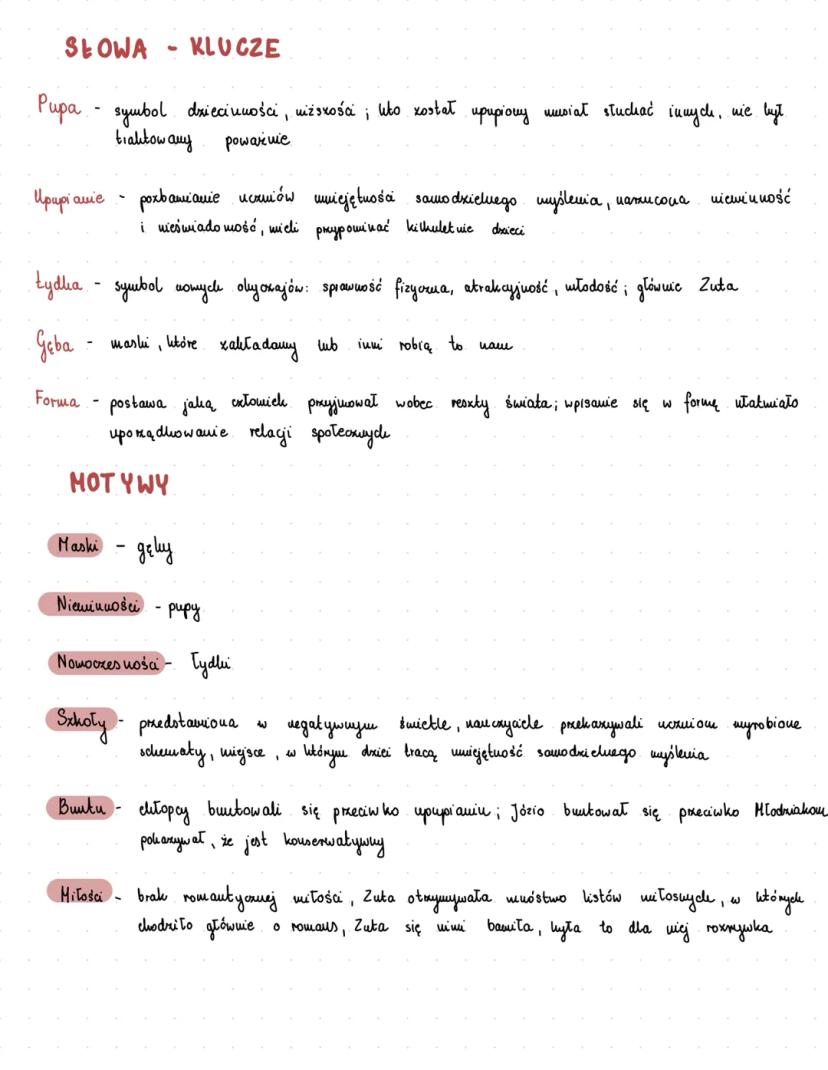 SŁOWA - KLUCZE
Pupa - symbol dziecinności, niższości; kto został upupiony musiał słuchać innych, nie był
traktowany poważnie
Upupianie - pozbawianie uczniów umiejętności samodzielnego myślenia, narzucona niewinność
i nieświadomość, mieli przypominać kilkuletnie dzieci
Łydka - symbol nowych obyczajów: sprawność fizyczna, atrakcyjność, młodość; głównie Zuta
Gęba - maski, które zakładamy lub inni robią to nam
Forma - postawa jaką człowiek przyjmował wobec reszty świata; wpisanie się w formę ułatwiało
uporządkowanie relacji społecznych
MOTYWY
Maski - gęby
Niewinności - pupy
Nowoczesności - łydki
Szkoły - przedstawiona w negatywnym świetle, nauczyciele przekazywali uczniom wyrobione
schematy, miejsce, w którym dzieci tracą umiejętność samodzielnego myślenia
Buntu - chłopcy buntowali się przeciwko upupianiu; Józio buntował się przeciwko Młodziakom
pokazywał, że jest konserwatywny
Miłości - brak romantycznej miłości, Zuta otrzymywała mnóstwo listów miłosnych, w których
chodziło głównie o romans, Zuta się nimi bawiła, była to dla niej rozrywka